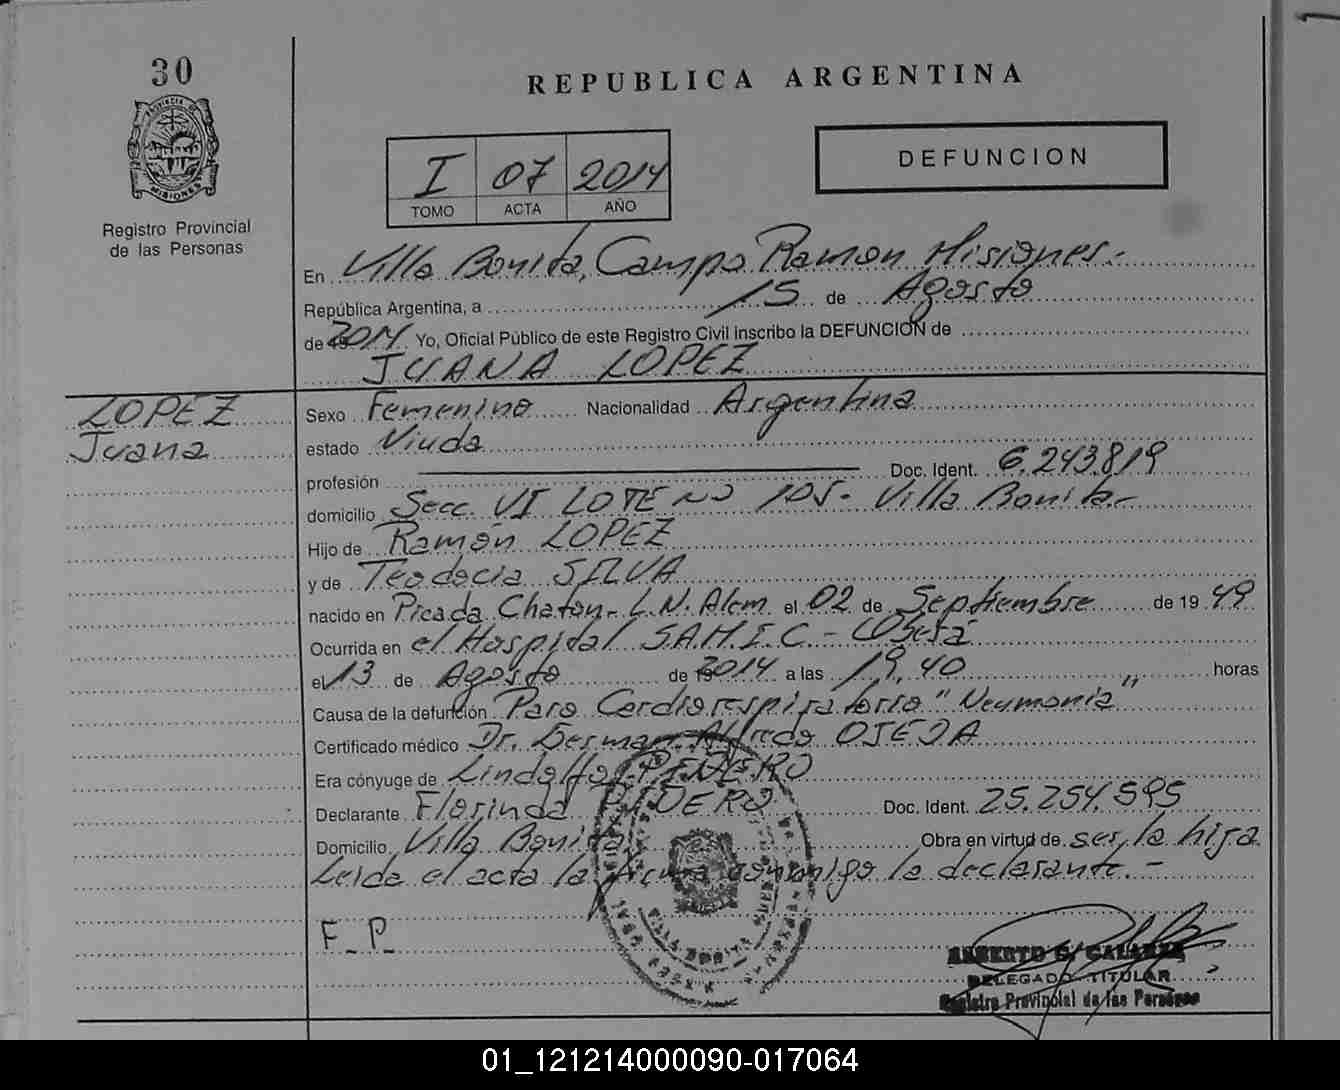 30
PROVINCIA DE
MISIONES
Registro Provincial
de las Personas
REPUBLICA ARGENTINA
I 07 2014
TOMO ACTA AÑO
DEFUNCION
En Villa Bonita, Campo Ramon Misiones.-
República Argentina, a 15 de Agosto
de 2014 Yo, Oficial Público de este Registro Civil inscribo la DEFUNCION de
JUANA LOPEZ
LOPEZ
Juana
Sexo Femenino Nacionalidad Argentina
estado Viuda
profesión Doc. Ident. 6.243.819
domicilio Secc. VI LOTE Nº 105- Villa Bonita.-
Hijo de Ramón LOPEZ
y de Teodocia SILVA
nacido en Picada Chafon- L.N. Alem el 02 de Septiembre de 19 49
Ocurrida en el Hospital S.A.M.I.C.- Oberá
el 13 de Agosto de 2014 a las 19,40 horas
Causa de la defunción Paro Cardiorespiratorio "Neumonia"
Certificado médico Dr. German Alfredo OJEDA
Era cónyuge de Lindolfo PINDERO
Declarante Florinda PINDERO Doc. Ident. 25.254.595
Domicilio Villa Bonita Obra en virtud de ser, la hija
Leida el acta la firma conmigo la declarante.-
F_P_
ALBERTO G. GALARZA
DELEGADO TITULAR
Registro Provincial de las Personas
01_121214000090-017064